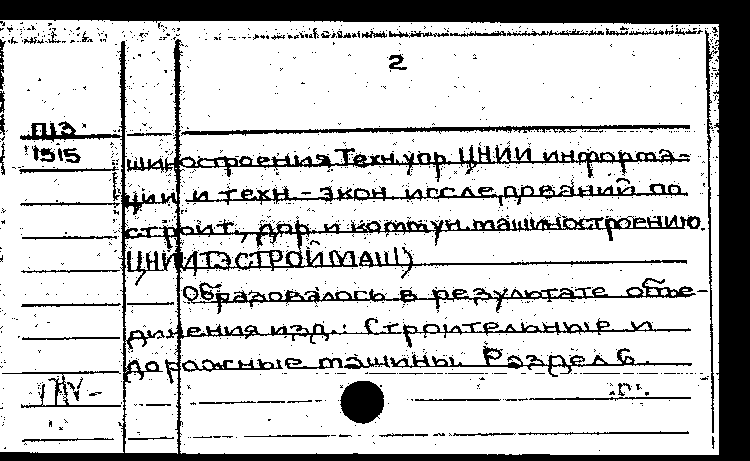 2
П13
1515
шиностроения. Техн. упр. ЦНИИ информа=
ции и техн.-экон. исследований по
строит., дор. и коммун. машиностроению.
ЦНИИТЭСТРОЙМАШ)
Образовалось в результате объе-
динения изд.: Строительные и
дорожные машины. Раздел 6.